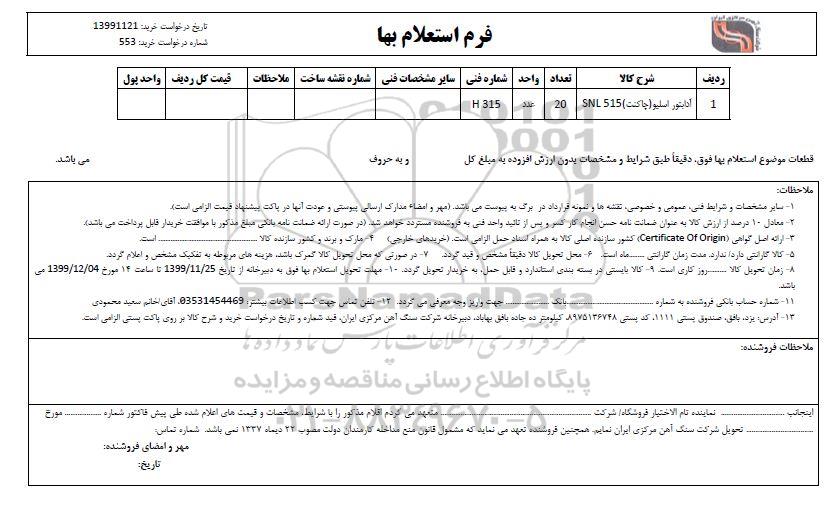 تاریخ درخواست خرید: 13991121
شماره درخواست خرید: 553
فرم استعلام بها
ردیف شرح کالا تعداد واحد شماره فنی سایر مشخصات فنی شماره نقشه ساخت ملاحظات قیمت کل ردیف واحد پول
1 آداپتور اسلیو(چاکنت)SNL 515 20 عدد H 315
قطعات موضوع استعلام بها فوق، دقیقاً طبق شرایط و مشخصات بدون ارزش افزوده به مبلغ کل و به حروف می باشد.
ملاحظات:
۱- سایر مشخصات و شرایط فنی، عمومی و خصوصی، نقشه ها و نمونه قرارداد در برگ به پیوست می باشد. (مهر و امضاء مدارک ارسالی پیوستی و عودت آنها در پاکت پیشنهاد قیمت الزامی است).
۲- معادل ۱۰ درصد از ارزش کالا به عنوان ضمانت نامه حسن انجام کار کسر و پس از تائید واحد فنی به فروشنده مسترد خواهد شد. (در صورت ارائه ضمانت نامه بانکی مبلغ مذکور با موافقت خریدار قابل پرداخت می باشد).
۳- ارائه اصل گواهی (Certificate Of Origin) کشور سازنده اصلی کالا به همراه اسناد حمل الزامی است. (خریدهای خارجی) ۴- مارک و برند و کشور سازنده کالا .................... است.
۵- کالا گارانتی دارد/ ندارد. مدت زمان گارانتی ........ماه است. ۶- محل تحویل کالا دقیقاً مشخص و قید گردد. ۷- در صورتی که محل تحویل کالا گمرک باشد، هزینه های مربوطه به تفکیک مشخص و اعلام گردد.
۸- زمان تحویل کالا ..........روز کاری است. ۹- کالا بایستی در بسته بندی استاندارد و قابل حمل، به خریدار تحویل گردد. ۱۰- مهلت تحویل استعلام بها فوق به دبیرخانه از تاریخ 1399/11/25 تا ساعت ۱۴ مورخ 1399/12/04 می
باشد.
۱۱- شماره حساب بانکی فروشنده به شماره ....................بانک .................... جهت واریز وجه معرفی می گردد. ۱۲- تلفن تماس جهت کسب اطلاعات بیشتر: 03531454469، آقای/خانم سعید محمودی
۱۳- آدرس: یزد، بافق، صندوق پستی ۱۱۱۱، کد پستی ۸۹۷۵۱۳۶۷۴۸، کیلومتر ده جاده بافق بهاباد، دبیرخانه شرکت سنگ آهن مرکزی ایران، قید شماره و تاریخ درخواست خرید و شرح کالا بر روی پاکت پستی الزامی است.
ParsNamadData
مرکز فرآوری اطلاعات پارس نماد داده ها
ملاحظات فروشنده:
پایگاه اطلاع رسانی مناقصه و مزایده
۰۲۱-۸۸۳۴۹۶۷۰-۵
اینجانب .................... نماینده تام الاختیار فروشگاه/ شرکت .................... متعهد می گردم اقلام مذکور را با شرایط، مشخصات و قیمت های اعلام شده طی پیش فاکتور شماره .................... مورخ
.................... تحویل شرکت سنگ آهن مرکزی ایران نمایم. همچنین فروشنده تعهد می نماید که مشمول قانون منع مداخله کارمندان دولت مصوب ۲۲ دیماه ۱۳۳۷ نمی باشد. شماره تماس:
مهر و امضای فروشنده:
تاریخ: